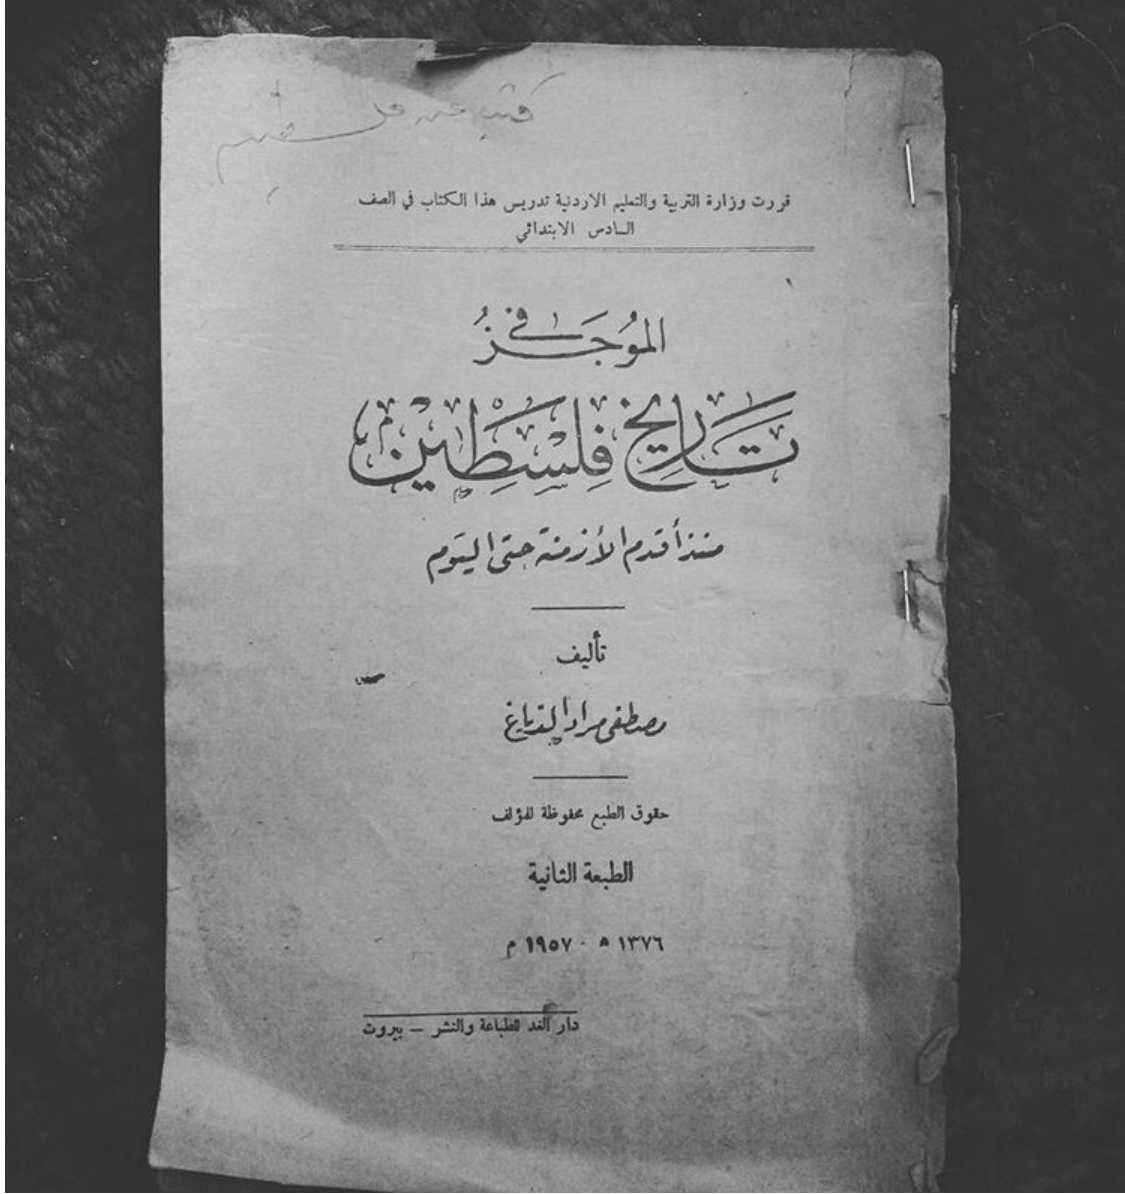 كتب عن فلسطين
قررت وزارة التربية والتعليم الاردنية تدريس هذا الكتاب في الصف
السادس الابتدائي
الموُجَزُ في
تَاريخ فِلسْطَين
منذ أقدم الأزمنة حتى اليَوم
تأليف
مصطفى مراد الدباغ
حقوق الطبع محفوظة للمؤلف
الطبعة الثانية
١٣٧٦ ه - ١٩٥٧ م
دار الغد للطباعة والنشر — بيروت